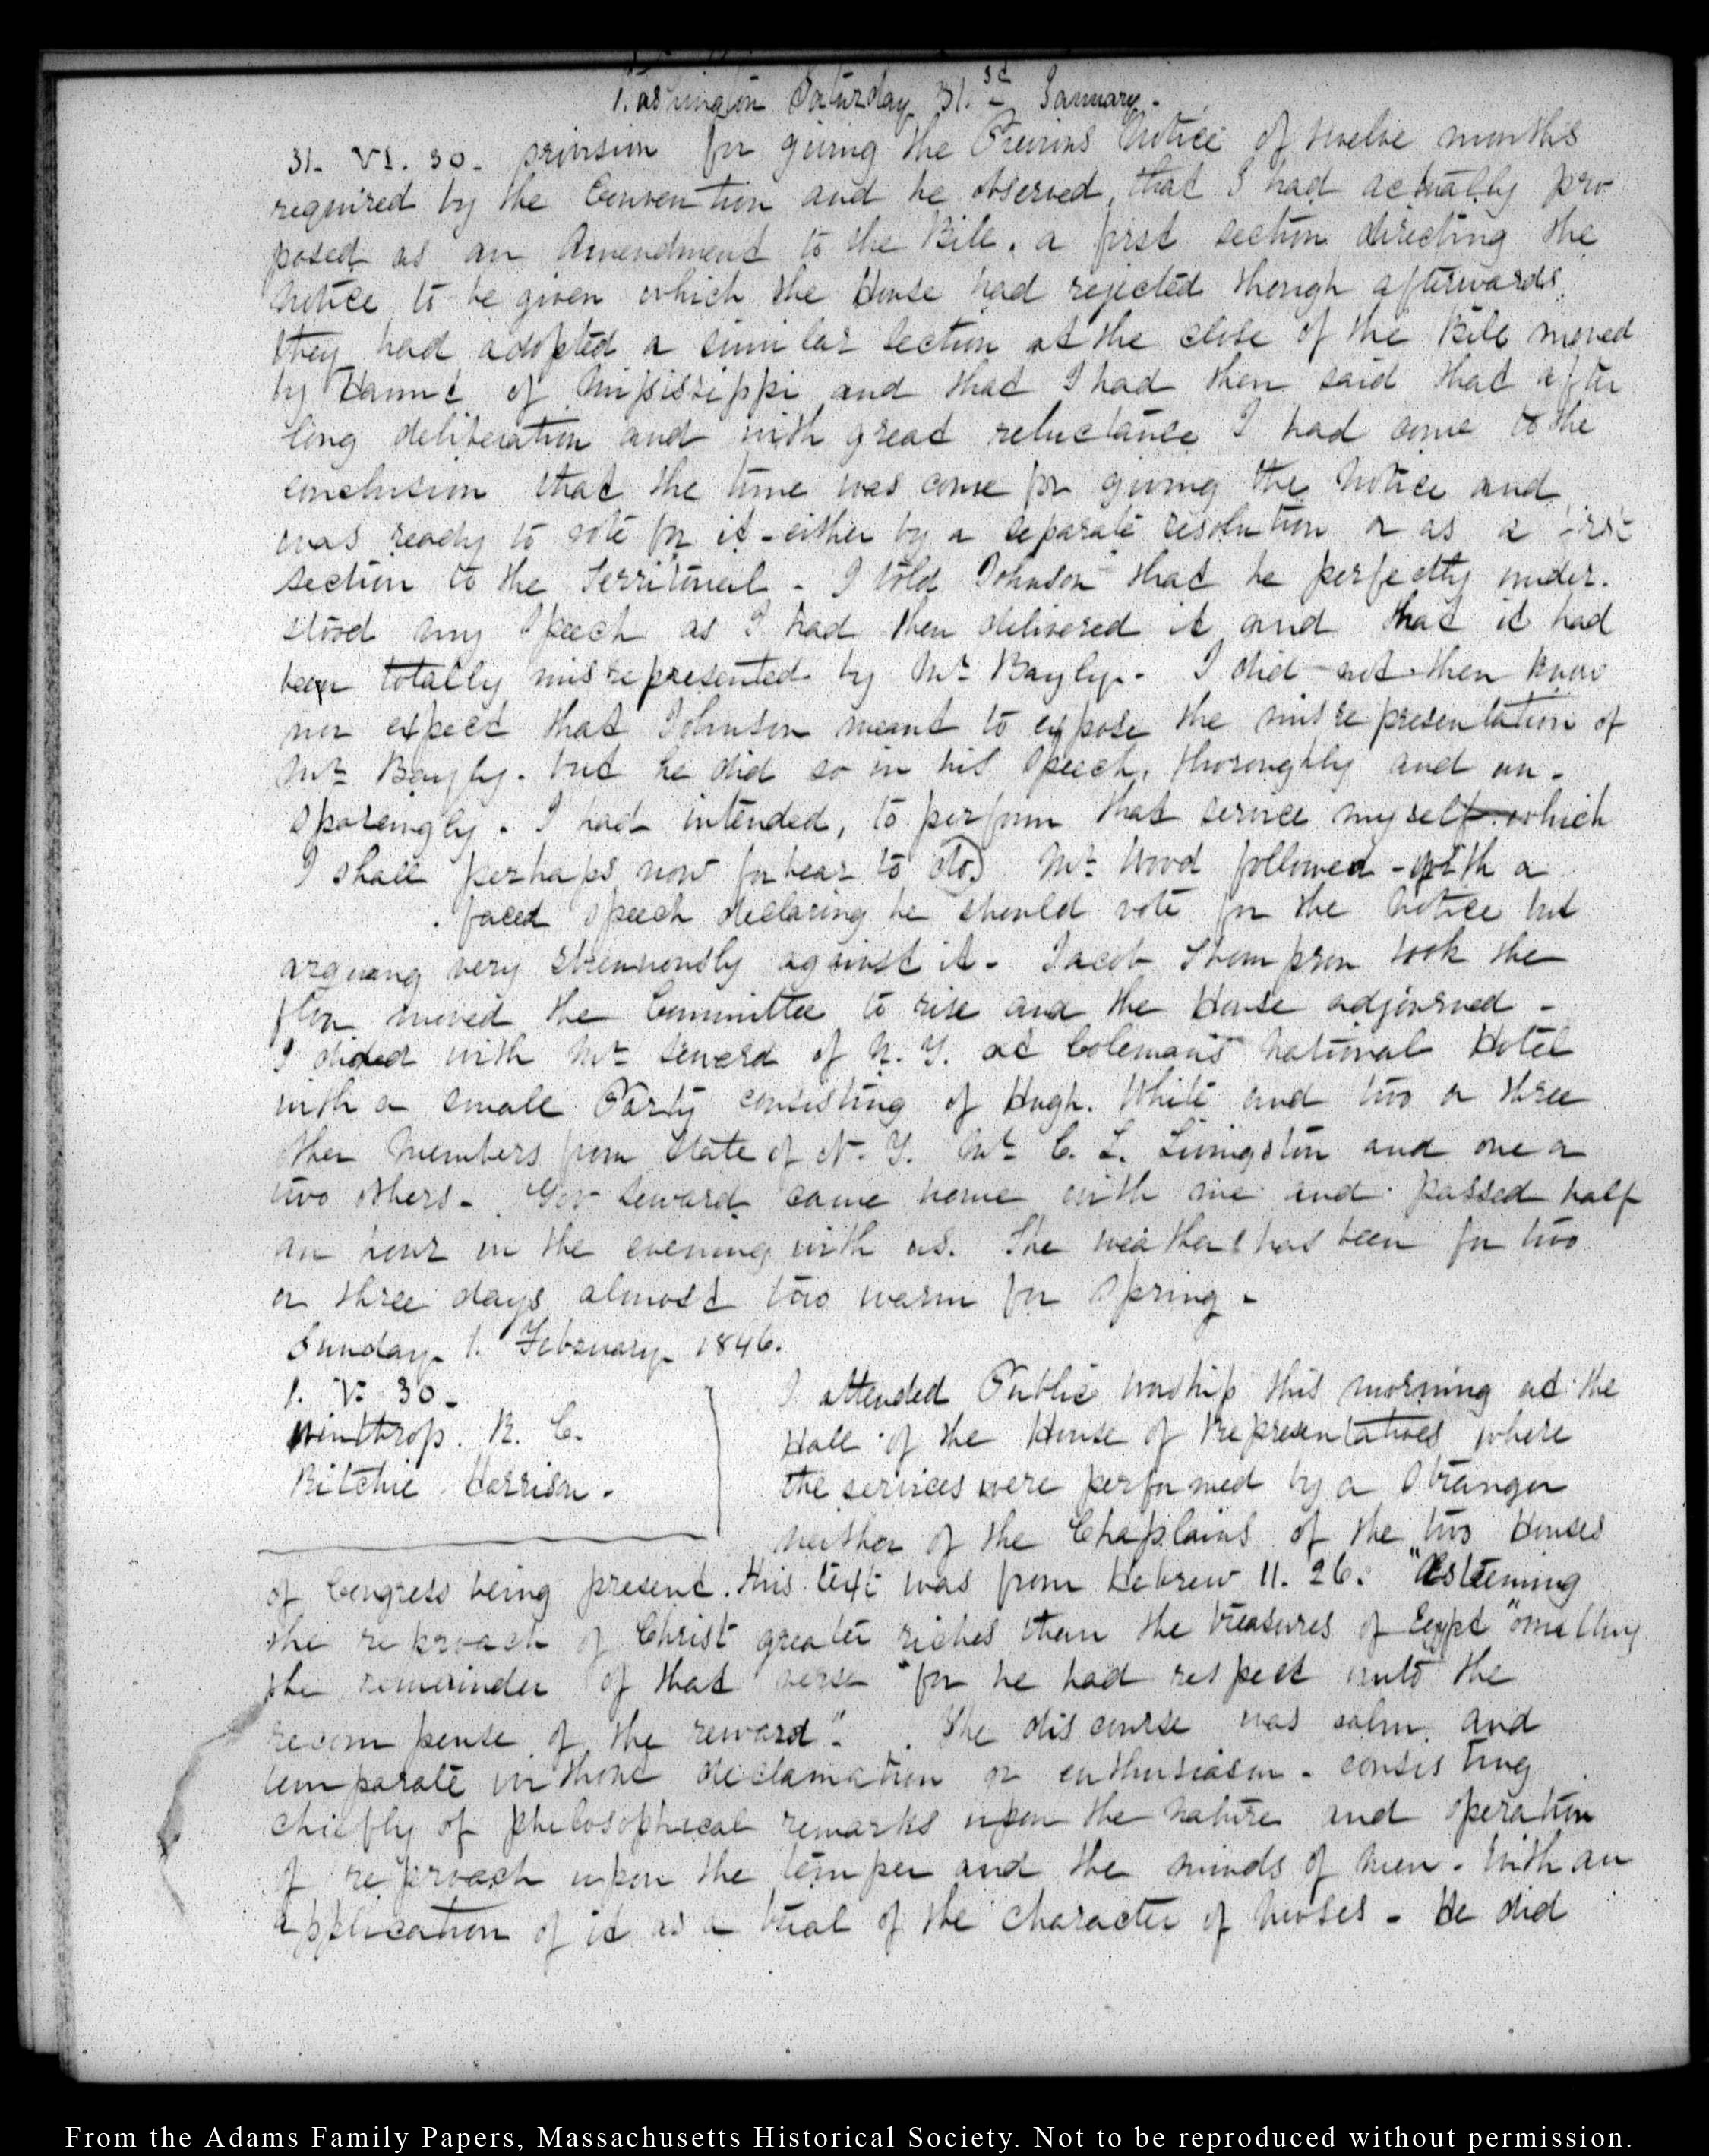 Washington Saturday 31.st January.
31. VI. 30. provision for giving the Previous Notice of twelve months
required by the Convention and he observed, that I had actually pro-
posed as an Amendment to the Bill. a first section directing the
Notice to be given which the House had rejected though afterwards
they had adopted a similar section at the close of the Bill moved
by of Mississippi and that I had then said that after
long deliberation and with great reluctance I had come to the
conclusion that the time was come for giving the Notice and
was ready to vote for it - either by a separate resolution or as a first
section to the Territorial - I told Johnson that he perfectly under-
stood my Speech as I had then delivered it and that it had
been totally misrepresented by Mr Bayly. I did not then know
nor expect that Johnson meant to expose the misrepresentation of
Mr Bayly. but he did so in his Speech, thoroughly and un-
sparingly. I had intended, to perform that service myself which
I shall perhaps now forbear to do. Mr Wood followed - with a
faced speech declaring he should vote for the Notice but
arguang very strenuously against it - Jacob Thompson took the
floor moved the Committee to rise and the House adjourned -
I dined with Mr Seward of N. Y. at Coleman's National Hotel
with a small Party consisting of Hugh. White and two or three
other Members from State of N. Y. Mr C. L. Livingston and one or
two others - Gov Seward came home with me and passed half
an hour in the evening with us. The weather has been for two
or three days almost too warm for Spring -
Sunday 1. February 1846.
1. V. 30 -
Winthrop. R. C.
Ritchie Harrison.
I attended Public worship this morning at the
Hall of the House of Representatives where
the services were performed by a Stranger
neither of the Chaplains of the two Houses
of Congress being present. This text was from Hebrew 11. 26. "Esteeming
the reproach of Christ greater riches than the treasures of Egypt" omitting
the remainder of that verse "for he had respect unto the
recompense of the reward". The discourse was calm and
temparate without declamation or enthusiasm - consisting
chiefly of philosophical remarks upon the nature and operation
of reproach upon the temper and the minds of men. With an
application of it as a trial of the character of Moses - He did
From the Adams Family Papers, Massachusetts Historical Society. Not to be reproduced without permission.